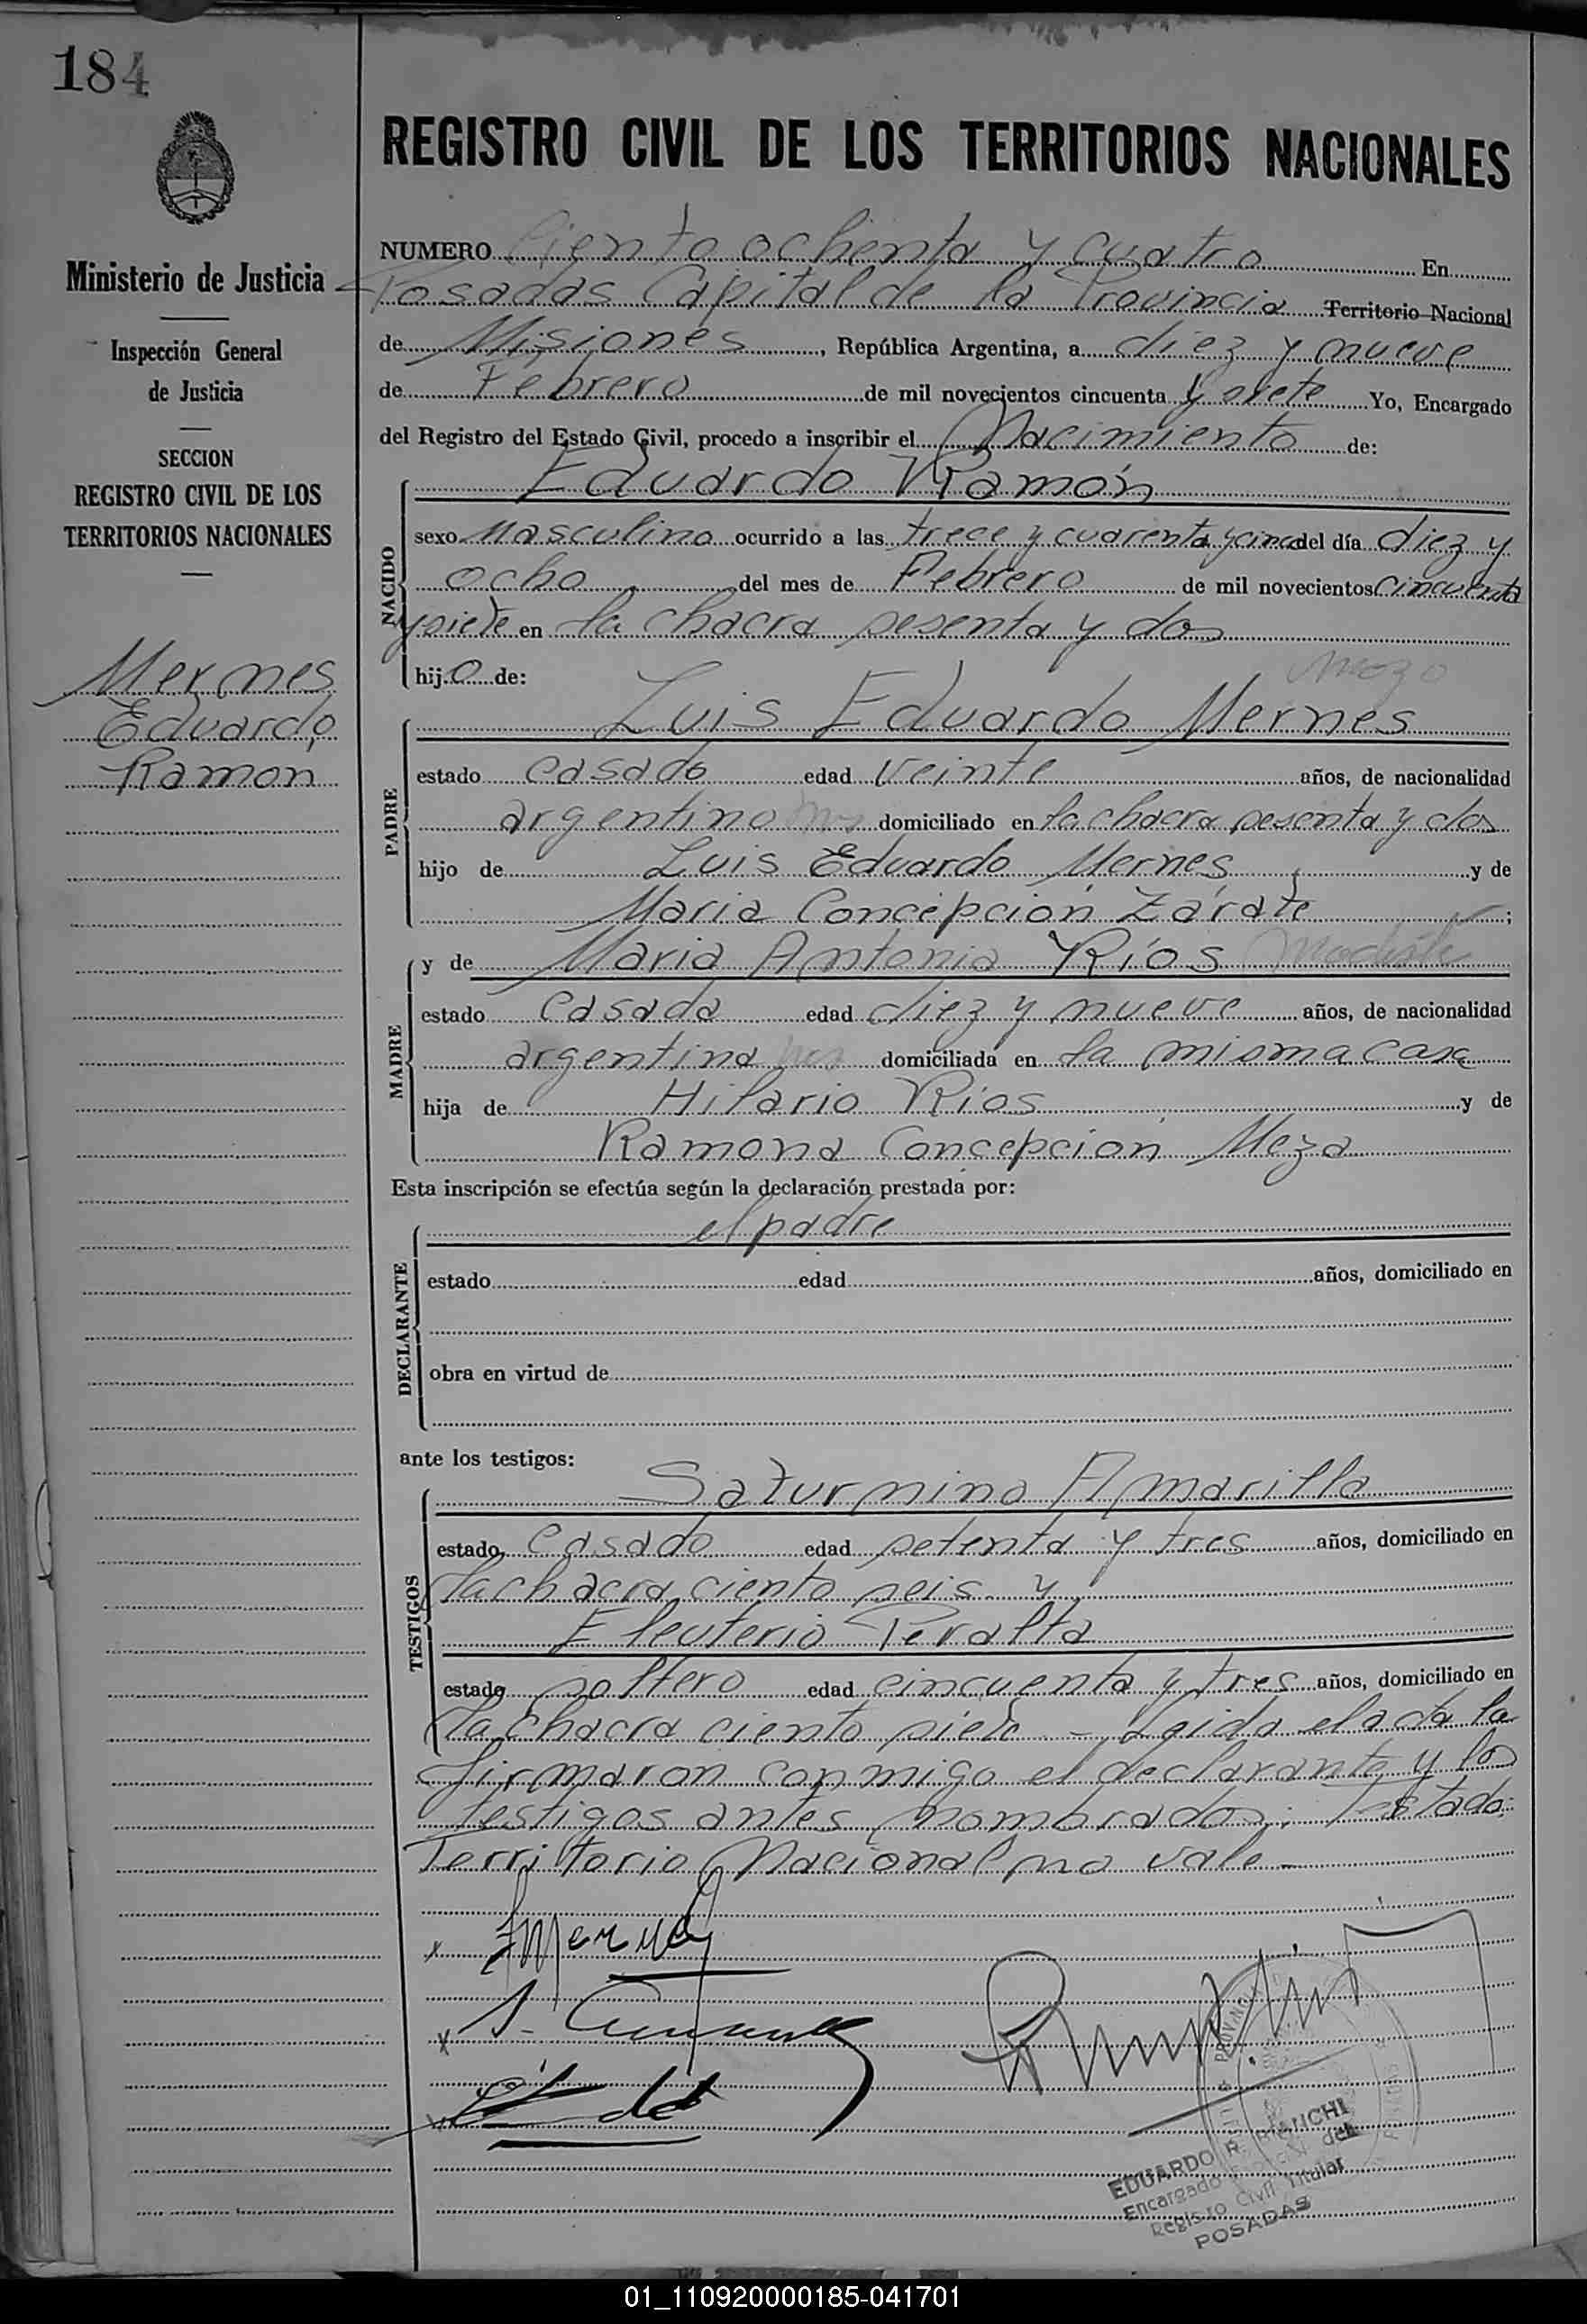 184
REGISTRO CIVIL DE LOS TERRITORIOS NACIONALES
Ministerio de Justicia
Inspección General
de Justicia
SECCION
REGISTRO CIVIL DE LOS
TERRITORIOS NACIONALES
Mernes
Eduardo
Ramon
NUMERO Ciento ochenta y cuatro En
Posadas Capital de la Provincia Territorio Nacional
de Misiones, República Argentina, a diez y nueve
de Febrero de mil novecientos cincuenta y siete Yo, Encargado
del Registro del Estado Civil, procedo a inscribir el Nacimiento de:
Eduardo Ramón
NACIDO
sexo Masculino ocurrido a las trece y cuarenta y cinco del día diez y
ocho del mes de Febrero de mil novecientos cincuenta
y siete en la chacra sesenta y dos
hijo de:
Luis Eduardo Mernes
PADRE
estado casado edad veinte años, de nacionalidad
argentino domiciliado en la chacra sesenta y dos
hijo de Luis Eduardo Mernes y de
Maria Concepción Zárate;
y de Maria Antonia Ríos
MADRE
estado casada edad diez y nueve años, de nacionalidad
argentina domiciliada en la misma casa
hija de Hilario Ríos y de
Ramona Concepción Meza
Esta inscripción se efectúa según la declaración prestada por:
el padre
DECLARANTE
estado edad años, domiciliado en
obra en virtud de
ante los testigos:
Saturnino Amarilla
TESTIGOS
estado casado edad setenta y tres años, domiciliado en
la chacra ciento seis y
Eleuterio Peralta
estado soltero edad cincuenta y tres años, domiciliado en
la chacra ciento siete - Leida el acta la
firmaron conmigo el declarante y los
testigos antes nombrados: Testado:
Territorio Nacional no vale-
EDUARDO R. BIANCHI
Encargado del
Registro Civil Titular
POSADAS
01_110920000185-041701